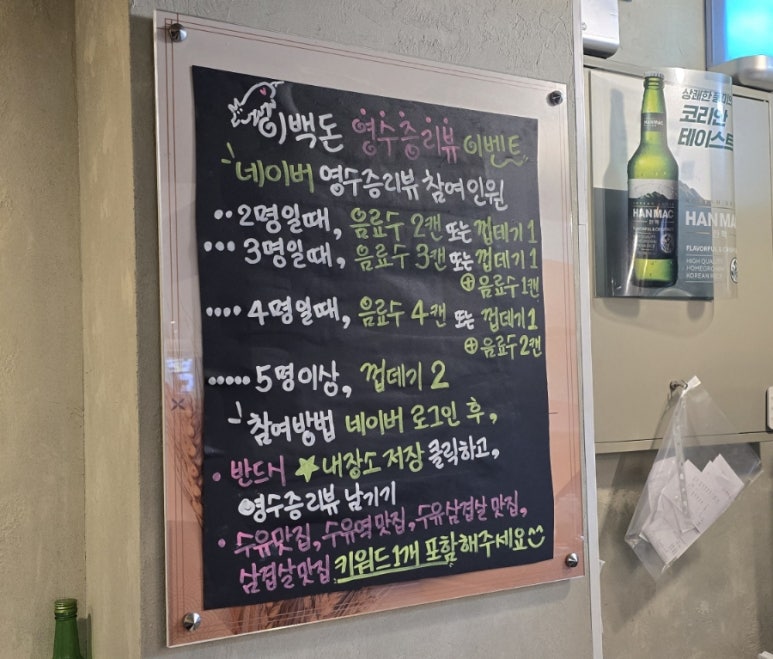 이백돈 영수증리뷰 이벤트
네이버 영수증리뷰 참여 인원
•• 2명일때, 음료수 2캔 또는 껍데기 1
••• 3명일때, 음료수 3캔 또는 껍데기 1
⊕ 음료수 1캔
•••• 4명일때, 음료수 4캔 또는 껍데기 1
⊕ 음료수 2캔
••••• 5명이상, 껍데기 2
참여방법 네이버 로그인 후,
• 반드시 ★내장소 저장 클릭하고,
영수증리뷰 남기기
• 수유맛집, 수유역맛집, 수유삼겹살 맛집,
삼겹살맛집 키워드1개 포함해주세요
상쾌한 풍미의
코리안
테이스트
HANMAC
HANMAC
한맥
HANMAC
FLAVORFUL &
HIGH QUALITY
HOMEGROWN
KOREAN RICE